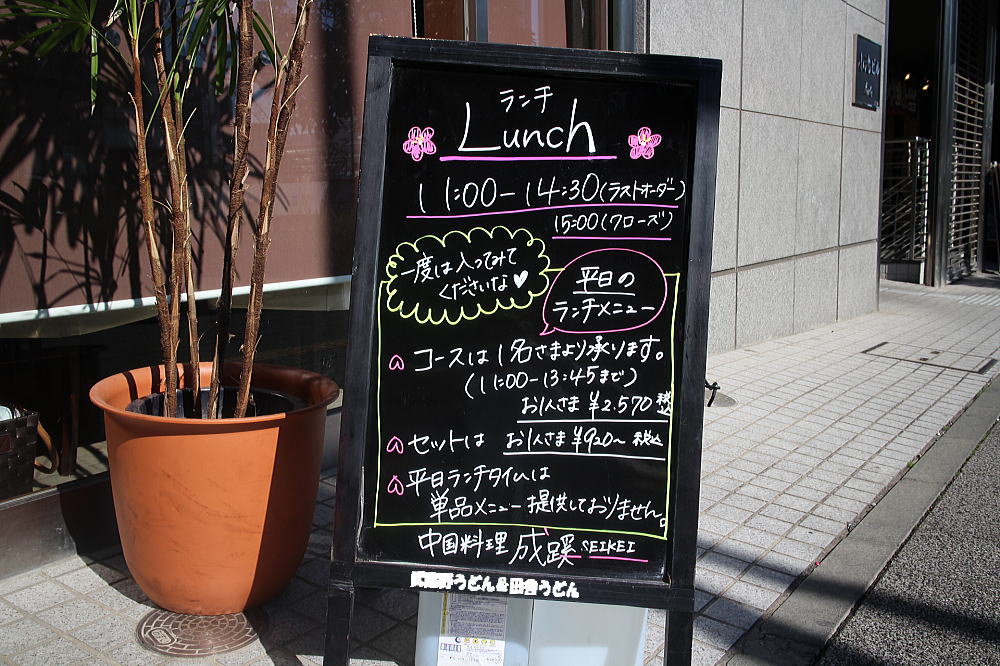 ランチ
Lunch
11:00-14:30(ラストオーダー)
15:00(クローズ)
一度は入ってみて
くださいな♥
平日の
ランチメニュー
コースは1名さまより承ります。
(11:00-13:45まで)
お1人さま ¥2.570 税込
セットは お1人さま ¥920~ 税込
平日ランチタイムは
単品メニュー提供しておりません。
中国料理 成蹊 SEIKEI
武蔵野うどん&田舎うどん